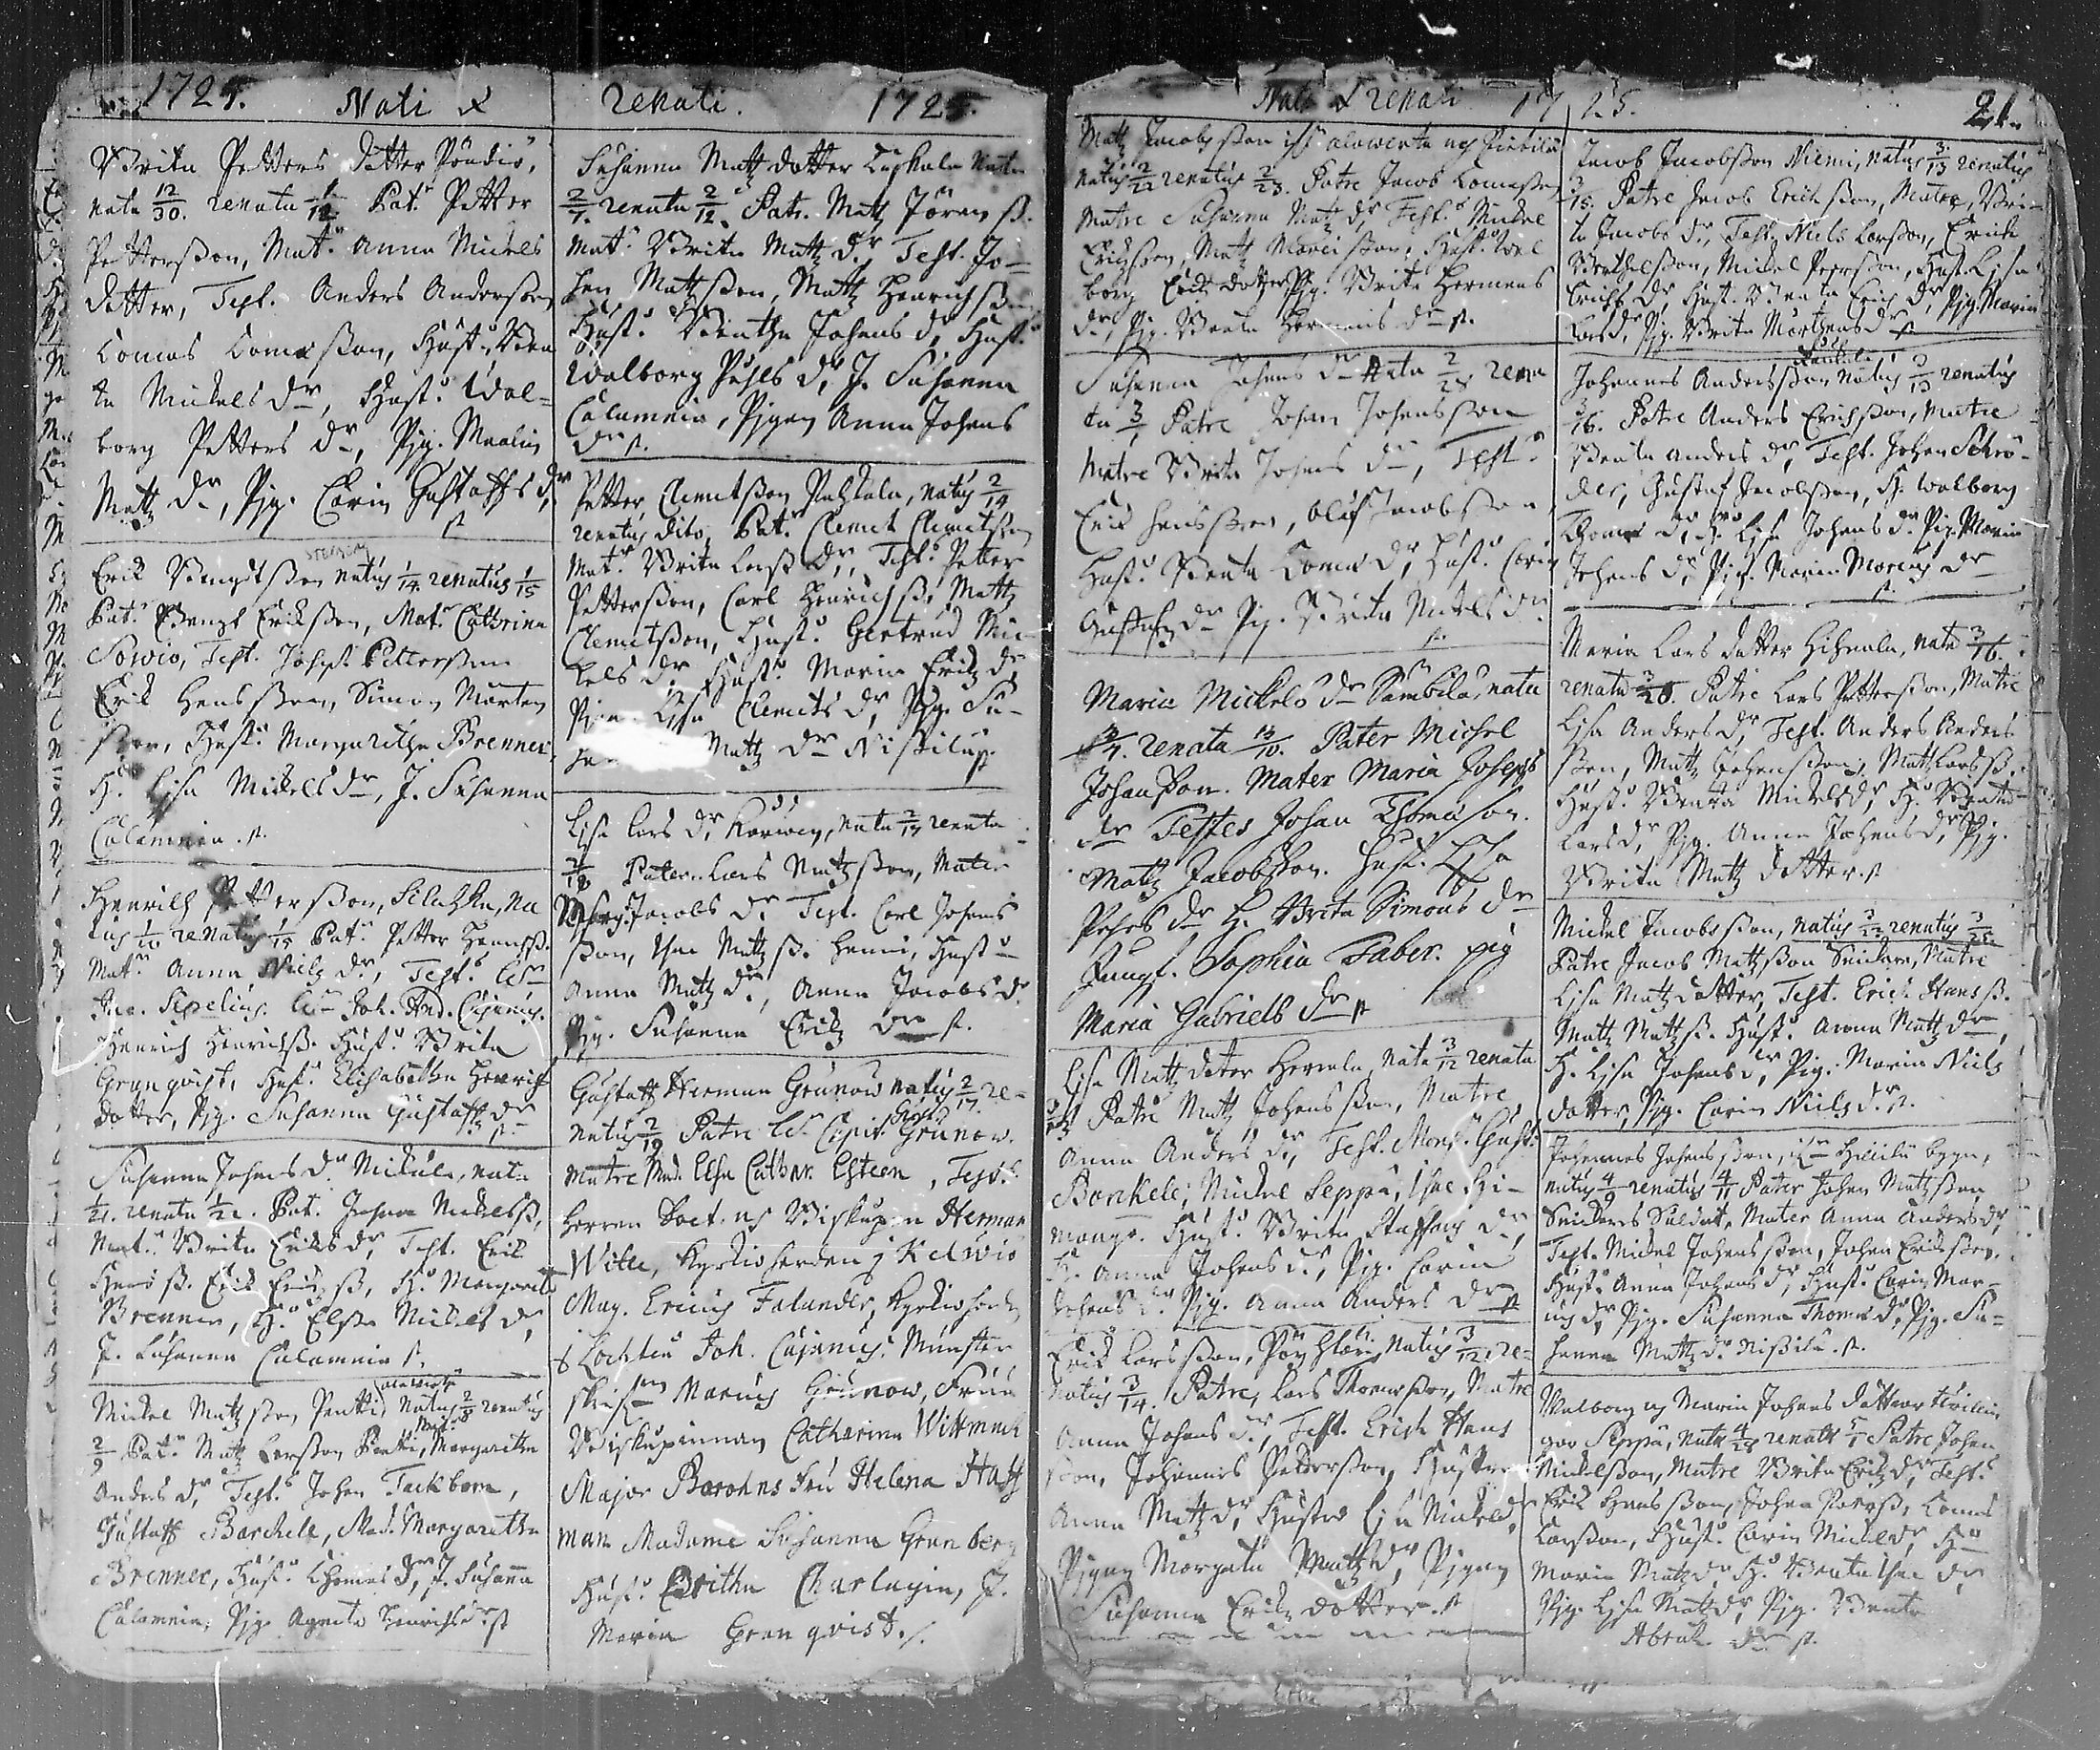 1725. Nati &
Brita Petters dotter Pöudiö,
nata 12/30. renata 1/12. Pat. Petter
Pettersson, Mat. Anna Mickels
dotter, Test. Anders Andersson,
Tomas Tomasson, Hust. Bea
ta Mickels dr, Hust. Wal=
borg Petters dr, Pig. Maalin
Matz dr, Pig. Carin Gustaffs dr
Erik Bengdtsson natus 1/14 renatus 1/15
Pat. Bengt Eriksson, Mat. Cathrina
Sowio, Test. Joseph Pettersson
Erik Hansson, Simon Mårten
sson, Hust. Margaretha Brenner,
H. Lisa Mickels dr, J. Susanna
Calamnia.
Henrich Pettersson, na
tus 1/10 renatus 1/15 Pat. Petter Henrichss.
Mat. Anna Niels dr, Test.
Joh. And. Cajanus.
Henrich Henrichss. Hust. Brita
Granqvist, Hust. Elisabetha Henrichs
dotter, Pig. Susanna Gustaffs dr
Susanna Johans dr Nickula, nata
1/21. renata 1/22. Pat. Johan Mickelss,
Mat. Brita Eriks dr, Test. Erik
Hanss. Erik Erikss, H. Margareta
Brenner, H. Elsa Mickels dr,
J. Susanna Calamnia
Mickel Matzson Pentti, natus 2/8 renatus
2/9 Pat. Matz Larsson Pentti, Mat. Margaretha
Anders dr, Test. Johan Tackborn,
Gustaff Barckele, Mad. Margaretha
Brenner, Hust. Thomas dr, J. Susanna
Calamnia, Pig. Agneta Henrichs dr
renati. 1725.
Susanna Matz dotter nata
2/7. renata 2/12. Patr. Matz Jörenss.
Mat. Brita Matz dr, Test. Jo-
han Matzson, Matz Henrichsson,
Hust. Beatha Johans dr, Hust.
Walborg Påhls dr, J. Susanna
Calamnia, Pigan Anna Johans
dr
Petter Clemetsson natus 2/14
renatus dito, Pat. Clemet Clemetsson
Mat. Brita Larss dr, Test. Petter
Pettersson, Carl Henrichss, Matz
Clemetsson, Hust. Gertrud Mic-
kels dr, Hust. Maria Eriks dr,
Pigan Lisa Clemets dr, Pig. Su-
Matz dr Nissilä
Lisa Lars dr, nata 2/17 renata
2/18 Pater Lars Matzson, Mater
Jacobs dr Test. Carl Johans
son, Isac Matzss. Hust
Anna Matz dr, Anna Jacobs dr
Pig. Susanna Eriks dr
Gustaff Herman Grunow natus 2/17. re-
natus 2/19 Patre Grunow.
Matre Mad. Elsa Cathar. Esteen, Test.
Herren Doct. och Biskupen Herman
Witte, Kyrkioherden i Kelwiö
Mag. Ericus Falander, Kyrkioherden
i Lochteå Joh. Cajanus. Mynster
skrif. Marcus Grunow, Fru
Biskupinnan Catharina Wittmack
Major Barohns fru Helena Hast
man Madame Susanna Granberg
Hust. Britha Charlagin, J.
Maria Granqvist.
Nati & renati 1725. 21.
Matz Jacobsson
natus 2/22 renatus 2/23. Patre Jacob Tomasson
Matre Susanna Matz dr Test. Mickel
Eriksson, Matz Hust. Wal
borg Eriks dotter, Pig. Brita Hermans
dr, Pig. Beata Hermans dr
Susanna Johans dr nata 2/28 rena
ta 3/1 Patre Johan Johansson
Matre Brita Johans dr, Test.
Erik Hansson, Oluf Jacobsson,
Hust. Beata Tomas dr, Hust. Carin
Gustafs dr Pig. Brita Mickels dr
Maria Mickels dr Sämbilä, nata
renata Pater Michel
Johansson. Mater Maria Josephs
dr Testes Johan Thomason.
Matz Jacobsson. Hust. Lisa
Pehrs dr H. Brita Simons dr
Jungf. Sophia Faber. pig
Maria Gabriels dr
Lisa Matz doter nata 3/12 renata
3/13 Patre Matz Johansson, Matre
Anna Anders dr, Test. Mons. Gust.
Barckele, Mickel Seppä, Isac Hi-
manga. Hust. Brita Staffans dr,
H. Anna Johans dr, Pig. Carin
Johans dr, Pig. Anna Anders dr
Erik Larsson, natus 3/12, re-
natus 3/14. Patre, Lars Thomasson, Matre
Anna Johans dr, Test. Erich Hans
son, Johannes Pettersson, Hustro
Anna Matz dr, Hustro Lisa Mickels dr,
Pigan Margeta Matz dr, Pigan
Susanna Eriks dotter.
Jacob Jacobsson Niemi, natus 3/13 renatus
3/15. Patre Jacob Erichsson, Matre, Bri-
ta Jacobs dr, Test. Niels Larsson, Erick
Berthelsson, Mickel Persson, Hust. Lisa
Erichs dr, Hust. Beata Erichs dr, Pig. Maria
Lars dr, Pig. Brita Mårthens dr
Johannes Andersson natus 3/13 renatus
3/16. Patre Anders Erichsson, Matre
Beata Anders dr, Test. Johan Schrö-
der, Gustaf Jacobsson, H. Walborg
Thomas dr, H. Lisa Johans dr, Pig. Maria
Johans dr, Pig. Maria Marcus dr
Maria Lars dotter nata 3/16.
renata 3/20. Patre Lars Pettersson, Matre
Lisa Anders dr, Test. Anders Anders
son, Matz Johansson, Matz Larsss.
Hust. Beata Mickels dr, H. Beata
Lars dr, Pig. Anna Johans dr, Pig.
Brita Matz dotter
Mickel Jacobsson, natus 3/22 renatus 3/25.
Patre Jacob Matzson Snickare, Matre
Lisa Matz dotter, Test. Erich Hanss.
Matz Matzss. Hust. Anna Matz dr,
H. Lisa Johans dr, Pig. Maria Niels
dotter, Pig. Carin Niels dr
Johannes Johansson,
natus 4/9 renatus 4/11 Pater Johan Matzson
Snickars Soldat, Mater Anna Anders dr,
Test. Mickel Johansson, Johan Eriksson,
Hust. Anna Johans dr, Hust. Carin Mar-
cus dr, Pig. Susanna Thomas dr, Pig. Su-
sanna Matz dr Nissilä.
Walborg och Maria Johans döttrar twilin
gar Seppä, natæ 4/28 renatæ 5/1 Patre Johan
Mickelsson, Matre Brita Eriks dr, Test.
Erik Hansson, Johan Tomas
Larsson, Hust. Carin Mickels dr, H.
Maria Matz dr, H. Beata Isac dr,
Pig. Lisa Matz dr, Pig. Beata
Abrah. dr